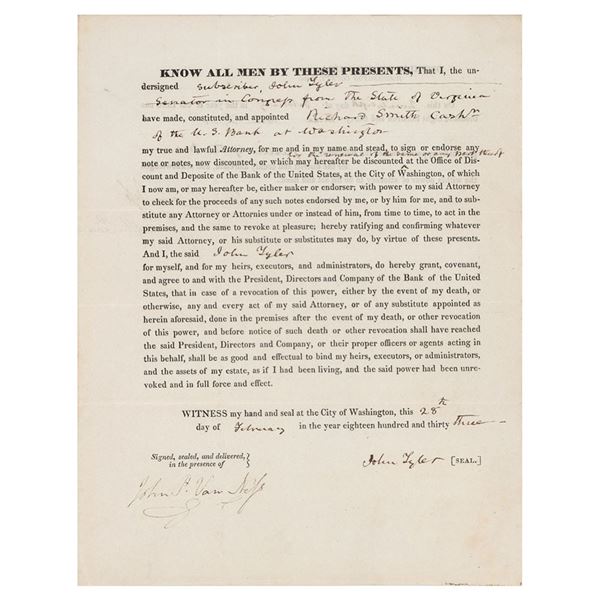 KNOW ALL MEN BY THESE PRESENTS, That I, the un-
dersigned subscriber, John Tyler
Senator in Congress from The State of Virginia
have made, constituted, and appointed Richard Smith Cashr
of the U. S. Bank at Washington
my true and lawful Attorney, for me and in my name and stead, to sign or endorse any
for the renewal of the same or any part thereof
note or notes, now discounted, or which may hereafter be discounted at the Office of Dis-
count and Deposite of the Bank of the United States, at the City of Washington, of which
I now am, or may hereafter be, either maker or endorser; with power to my said Attorney
to check for the proceeds of any such notes endorsed by me, or by him for me, and to sub-
stitute any Attorney or Attornies under or instead of him, from time to time, to act in the
premises, and the same to revoke at pleasure; hereby ratifying and confirming whatever
my said Attorney, or his substitute or substitutes may do, by virtue of these presents.
And I, the said John Tyler
for myself, and for my heirs, executors, and administrators, do hereby grant, covenant,
and agree to and with the President, Directors and Company of the Bank of the United
States, that in case of a revocation of this power, either by the event of my death, or
otherwise, any and every act of my said Attorney, or of any substitute appointed as
herein aforesaid, done in the premises after the event of my death, or other revocation
of this power, and before notice of such death or other revocation shall have reached
the said President, Directors and Company, or their proper officers or agents acting in
this behalf, shall be as good and effectual to bind my heirs, executors, or administrators,
and the assets of my estate, as if I had been living, and the said power had been unre-
voked and in full force and effect.
WITNESS my hand and seal at the City of Washington, this 28th
day of February in the year eighteen hundred and thirty three
Signed, sealed, and delivered,
in the presence of
John Tyler [SEAL.]
John P. Van Ness